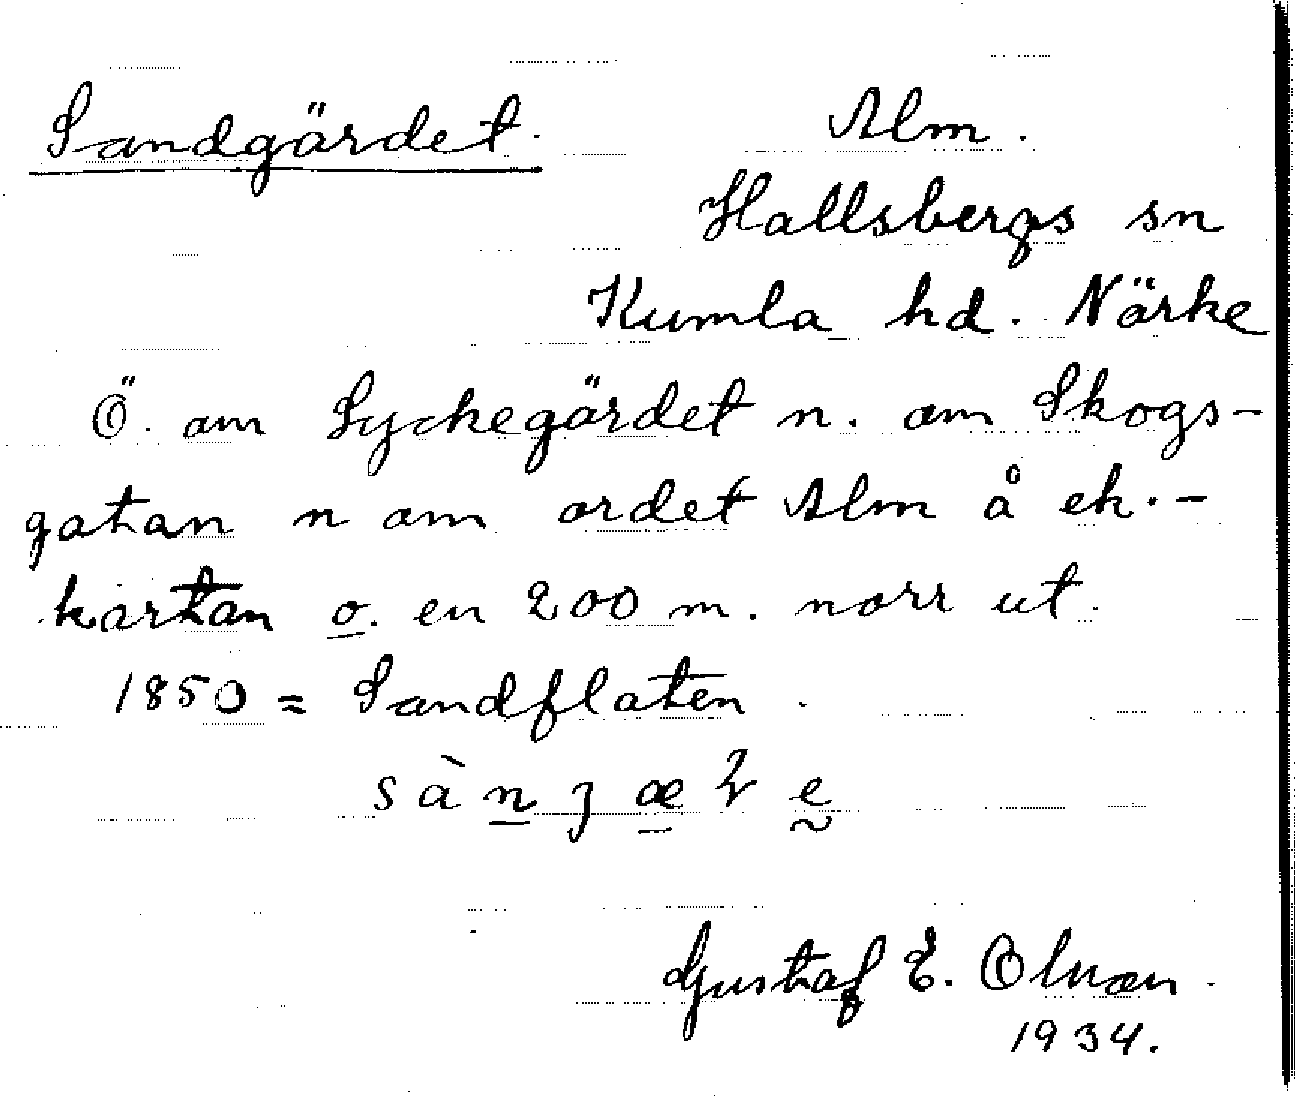 Sandgärdet.
Alm.
Hallsbergs sn
Kumla hd. Närke
Ö. om Lyckegärdet n. om Skogs-
gatan n om ordet Alm å ek.-
kartan o. en 200 m. norr ut.
1850 = Sandflaten.
Gustaf E.
1934.